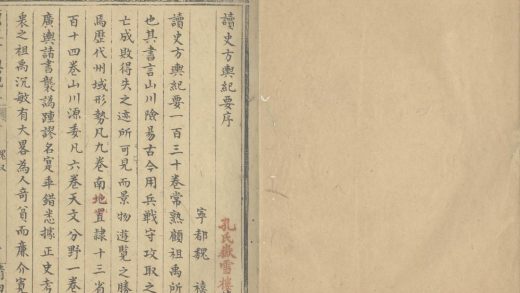 讀史方輿紀要序
孔氏嶽雪樓
寧都魏 禧
讀史方輿紀要一百三十卷常熟顧祖禹所
也其書言山川險易古今用兵戰守攻取之
亡成敗得失之迹所可見而景物遊覽之勝
焉歷代州域形勢凡九卷南地置隸十三省
百十四卷山川源委凡六卷天文分野一卷
廣輿諸書襲譌踵謬名寔乖錯悉據正史考
衷之祖禹沉敏有大畧為人奇貧而廉介寬